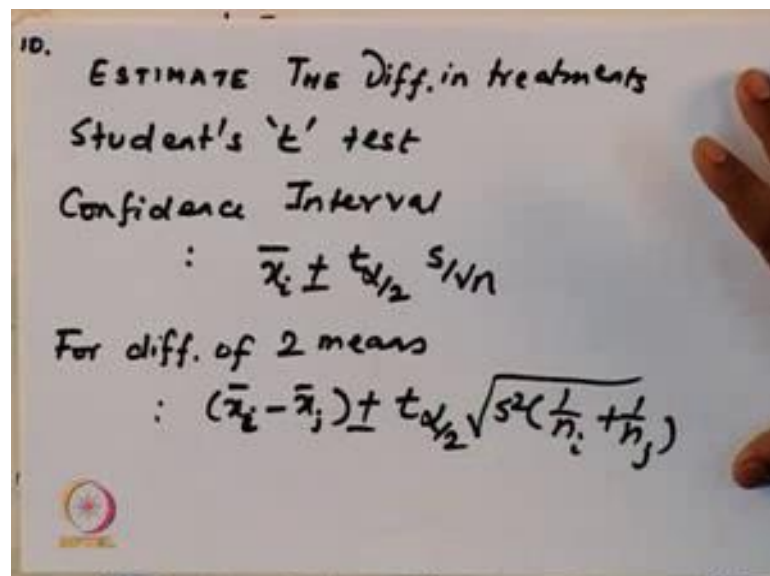 10.
ESTIMATE THE Diff. in treatments
Student's 't' test
Confidence Interval
: x̄ᵢ ± t_α/2 s/√n
For diff. of 2 means
: (x̄ᵢ - x̄ⱼ) ± t_α/2 √s²(1/nᵢ + 1/nⱼ)